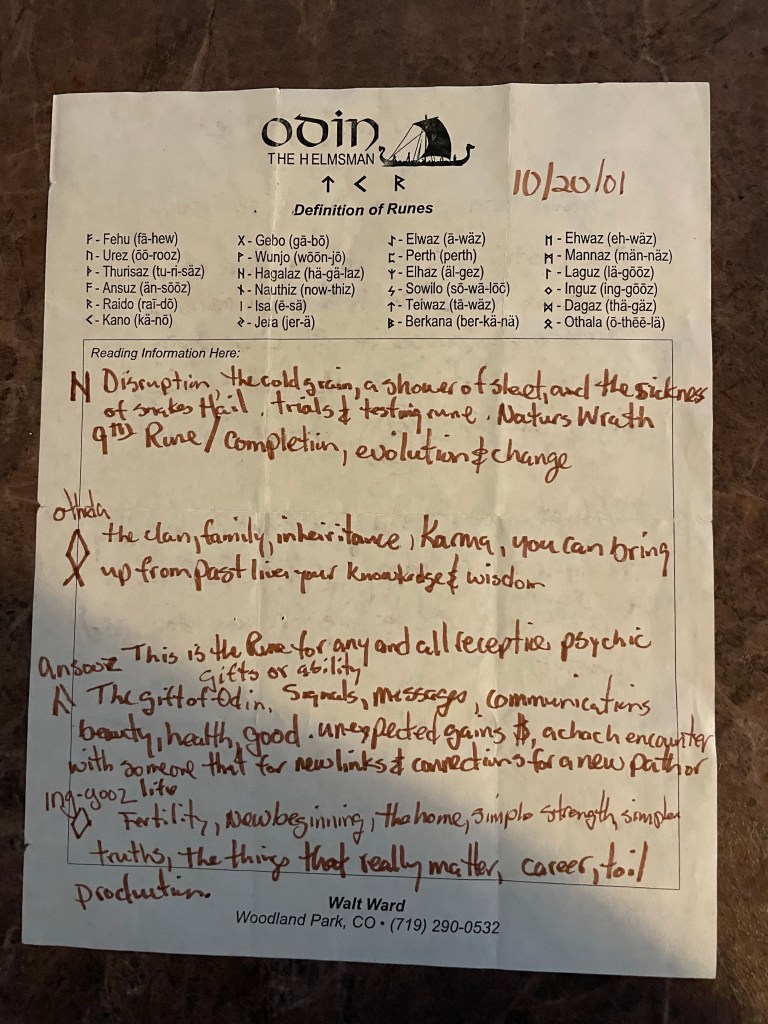 ODIN
THE HELMSMAN
ᛏ ᚲ ᚱ
10/20/01
Definition of Runes
ᚠ - Fehu (fā-hew)
ᚢ - Urez (ōō-rooz)
ᚦ - Thurisaz (tu-ri-säz)
ᚨ - Ansuz (än-sōōz)
ᚱ - Raido (raī-dō)
ᚲ - Kano (kä-nō)
ᚷ - Gebo (gā-bō)
ᚹ - Wunjo (wōōn-jō)
ᚺ - Hagalaz (hä-gä-laz)
ᚾ - Nauthiz (now-thiz)
ᛁ - Isa (ē-sä)
ᛃ - Jera (jer-ä)
ᛇ - Elwaz (ā-wäz)
ᛈ - Perth (perth)
ᛉ - Elhaz (äl-gez)
ᛊ - Sowilo (sō-wä-lōō)
ᛏ - Teiwaz (tā-wäz)
ᛒ - Berkana (ber-kä-nä)
ᛖ - Ehwaz (eh-wäz)
ᛗ - Mannaz (män-näz)
ᛚ - Laguz (lä-gōōz)
ᛜ - Inguz (ing-gōōz)
ᛞ - Dagaz (thä-gäz)
ᛟ - Othala (ō-thēē-lä)
Reading Information Here:
ᚺ Disruption, the cold grain, a shower of sleet, and the sickness
of snakes Hail. trials & testing rune. Naturs Wrath
9th Rune / completion, evolution & change
othela
ᛟ the clan, family, inheiritance, Karma, you can bring
up from past lives your knowledge & wisdom
This is the Rune for any and all receptive psychic
gifts or ability
ansooz
ᚨ The gift of Odin, Signals, messages, communications
beauty, health, good. unexpected gains $, a chach encounter
with someone that for new links & connections for a new path or
life
ing-gooz
ᛜ Fertility, New beginning, the home, simple strength, simple
truths, the things that really matter, career, toil
production.
Walt Ward
Woodland Park, CO • (719) 290-0532